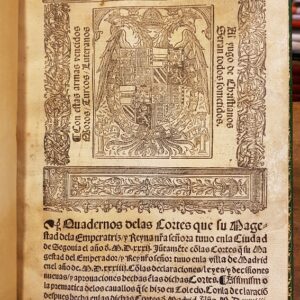 Con estas armas vencidos
Moros, Turcos, Luteranos
Al yugo de Christianos
Seran todos sometidos.
Quadernos delas Cortes que su Mages
stad dela Emperatriz y Reyna nr̃a señora tuuo enla Ciudad
de Segouia el año de M.D.XXXII. Jũtamẽte cõ las Cortes q̃ su Ma
gestad del Emperador y Rey nr̃o señor tuuo enla villa de Madrid
en el año de M.D.XXXIIII. Cõ las declaraciones leyes y decisiones
nueuas y aprouaciones hechas enlas dichas Cortes. Assimismo
la prematica delos cauallos que se hizo en Toledo. Con la
despues hecha